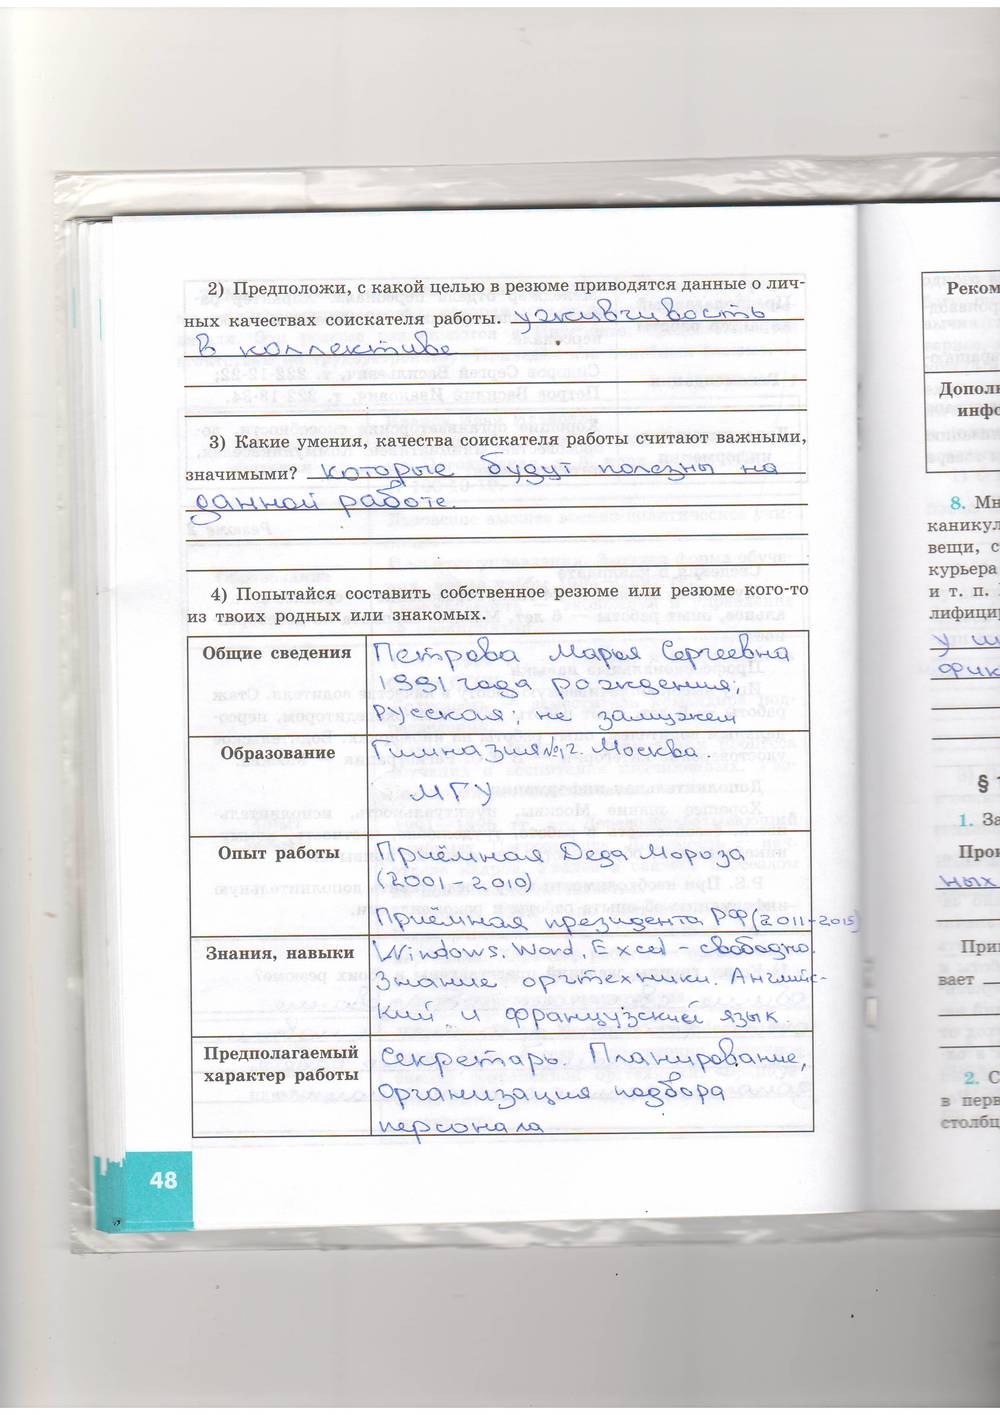 2) Предположи, с какой целью в резюме приводятся данные о лич-
ных качествах соискателя работы. уживчивость
в коллективе
3) Какие умения, качества соискателя работы считают важными,
значимыми? которые будут полезны на
данной работе.
4) Попытайся составить собственное резюме или резюме кого-то
из твоих родных или знакомых.
Общие сведения
Петрова Марья Сергеевна
1991 года рождения;
русская; не замужем
Образование
Гимназия №1 г. Москва.
МГУ
Опыт работы
Приёмная Деда Мороза
(2001-2010)
Приёмная президента РФ (2011-2015)
Знания, навыки
Windows, Word, Excel - свободно.
Знание оргтехники. Английс-
кий и французский язык.
Предполагаемый
характер работы
Секретарь. Планирование,
Организация подбора
персонала
48
Реком
Дополн
инфо
8. Мн
каникул
вещи, с
курьера
и т. п.
лифицир
у ш
фик
§ 1
1. За
Прои
ных
При
вает
2. С
в перв
столбц